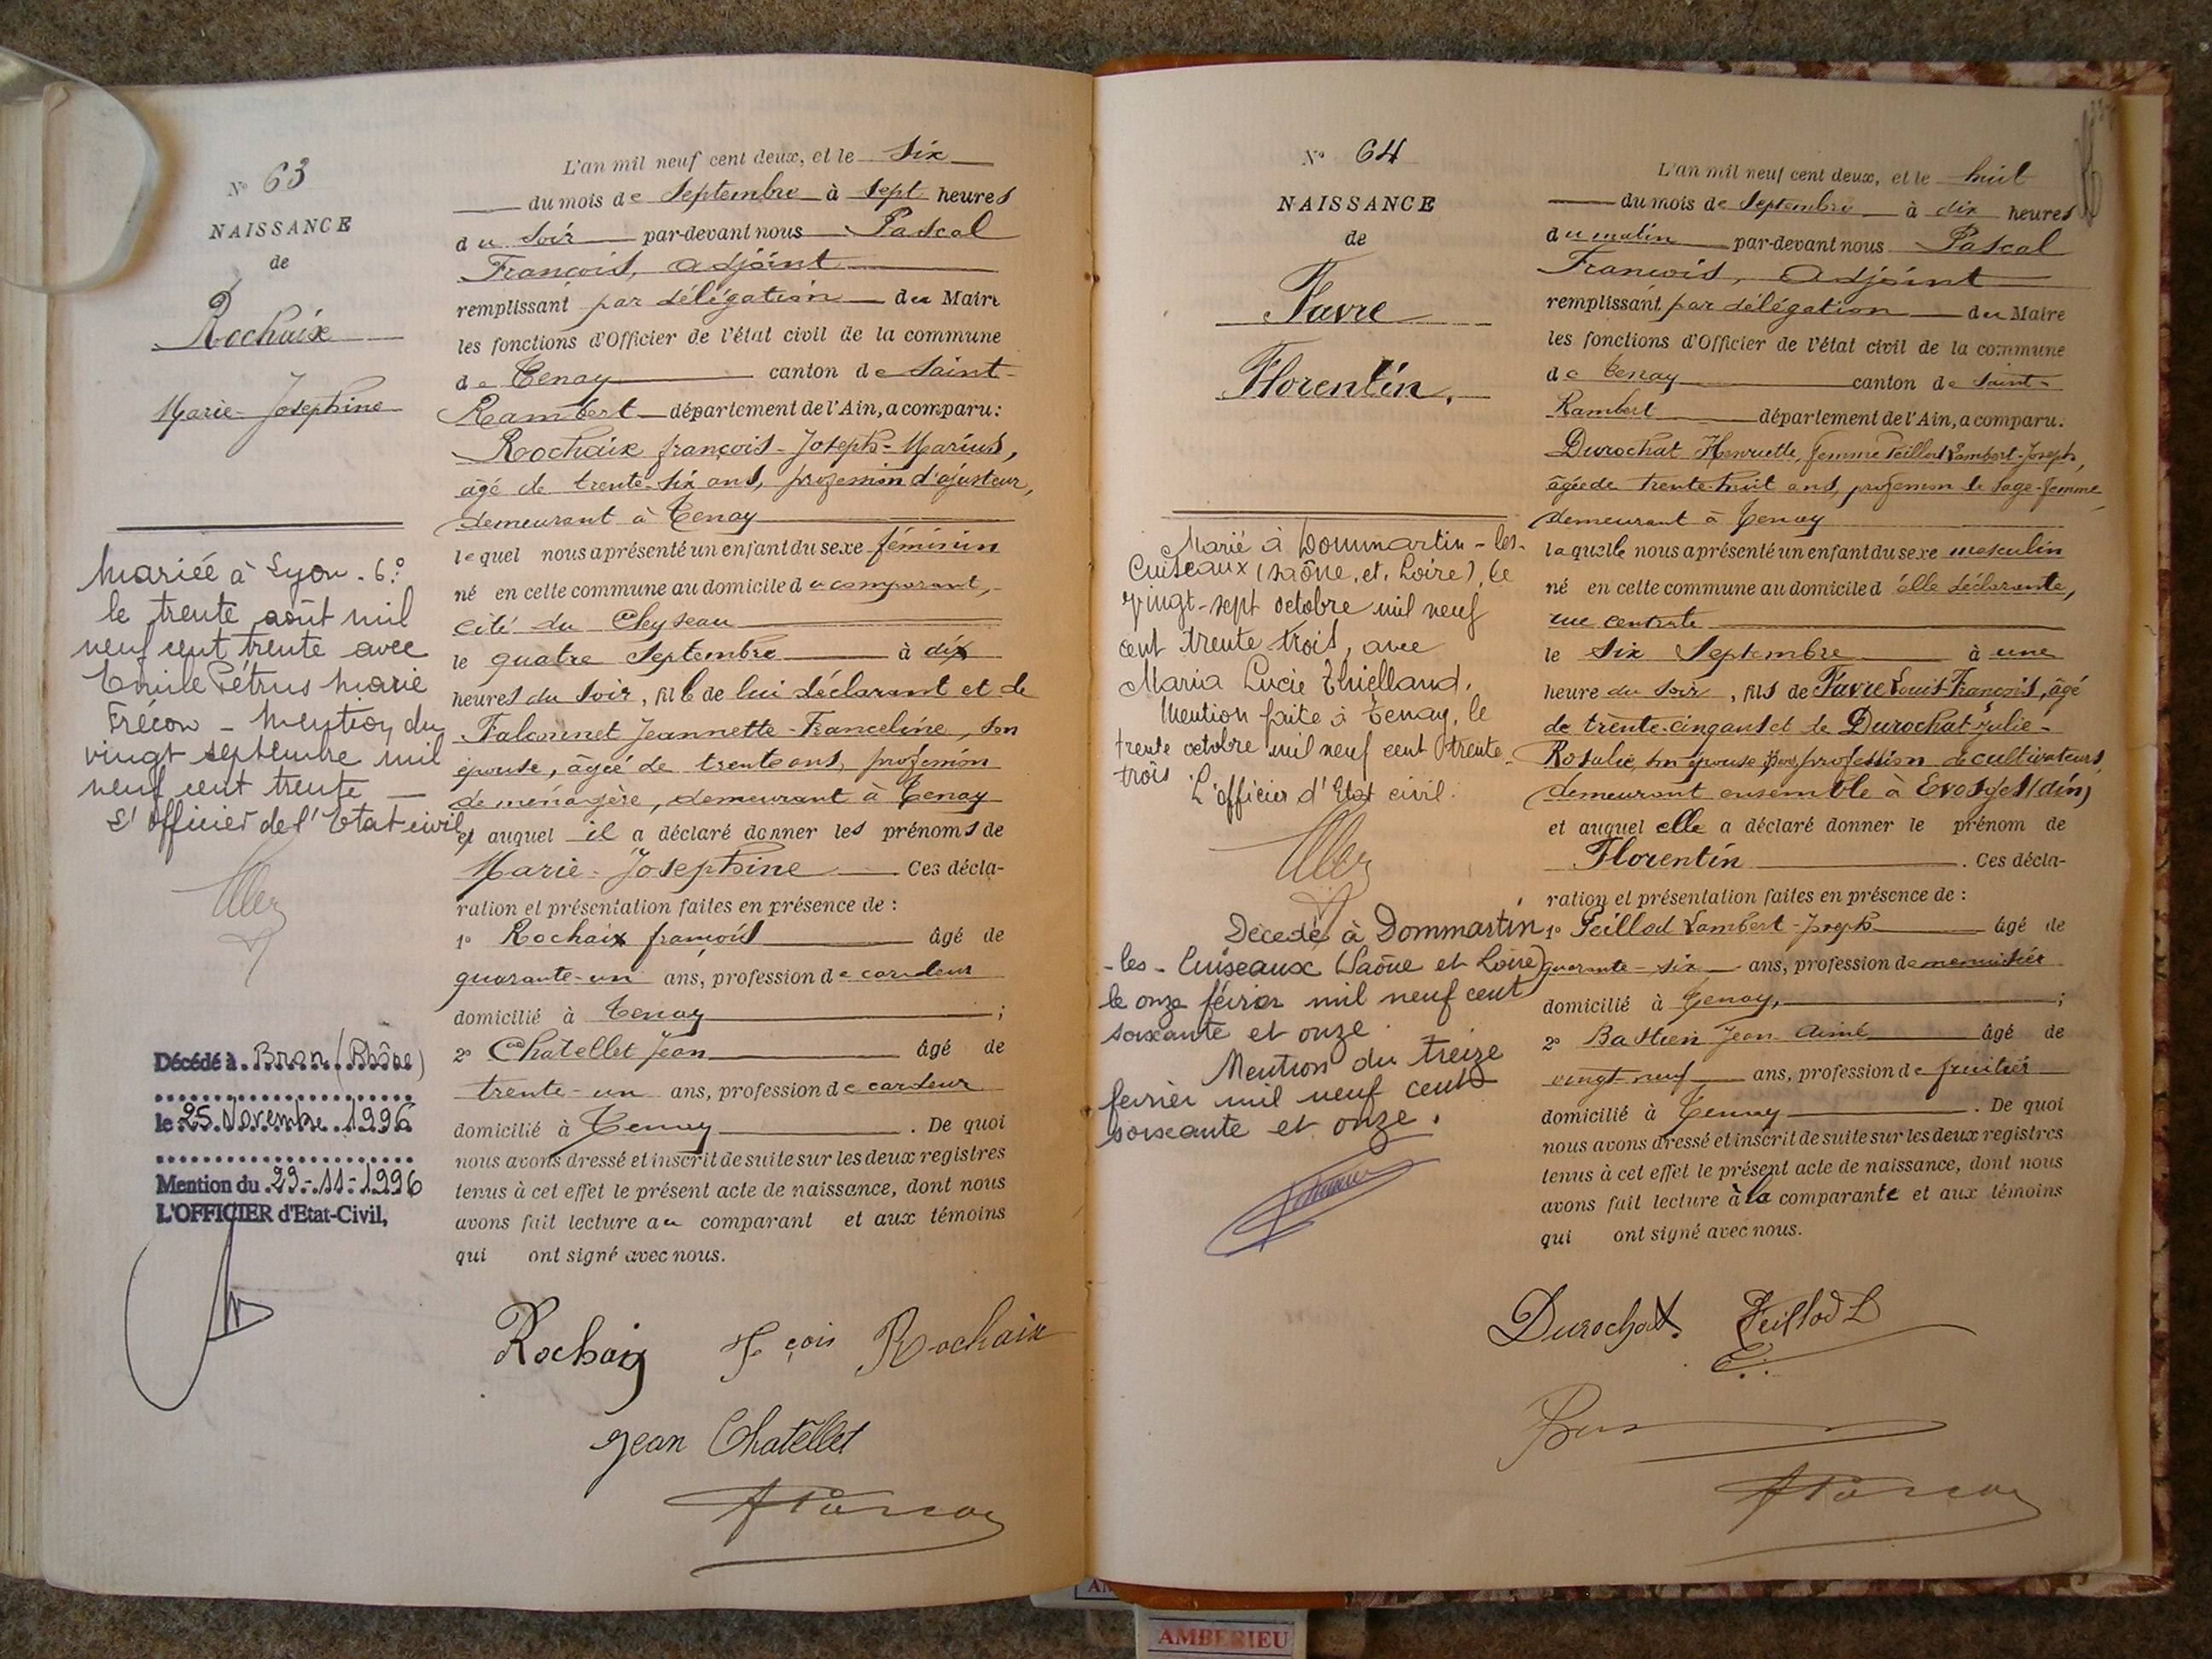 N° 63
NAISSANCE
de
Rochaix
Marie-Josephine
Mariée à Lyon. 6°
le trente août mil
neuf cent trente avec
Emile Pétrus Marie
Frécon - Mention du
vingt septembre mil
neuf cent trente —
L'Officier de l'Etat civil
Décédé à Bron (Rhône)
le 25 Novembre 1996
Mention du 29-11-1996
L'OFFICIER d'Etat-Civil,
L'an mil neuf cent deux, et le six
du mois de Septembre à sept heures
du soir par-devant nous Pascal
François, adjoint
remplissant par délégation du Maire
les fonctions d'Officier de l'état civil de la commune
de Tenay canton de Saint-
Rambert département de l'Ain, a comparu:
Rochaix françois-Joseph-Marius,
âgé de trente-six ans, profession d'ajusteur,
demeurant à Tenay
lequel nous a présenté un enfant du sexe féminin
né en cette commune au domicile du comparant,
cité du Cleyseau
le quatre Septembre à dix
heures du soir, fille de lui déclarant et de
Falconnet Jeannette-Franceline, son
épouse, âgée de trente ans, profession
de ménagère, demeurant à Tenay
et auquel il a déclaré donner les prénoms de
Marie-Josephine. Ces décla-
ration et présentation faites en présence de :
1° Rochaix françois âgé de
quarante-un ans, profession de cardeur
domicilié à Tenay ;
2° Chatellet Jean âgé de
trente-un ans, profession de cardeur
domicilié à Tenay. De quoi
nous avons dressé et inscrit de suite sur les deux registres
tenus à cet effet le présent acte de naissance, dont nous
avons fait lecture au comparant et aux témoins
qui ont signé avec nous.
Rochaix Fçois Rochaix
Jean Chatellet
N° 64
NAISSANCE
de
Favre
Florentin.
Marié à Dommartin-les-
Cuiseaux (Saône, et, Loire), le
vingt-sept octobre mil neuf
cent trente trois, avec
Maria Lucie Thielland.
Mention faite à Tenay, le
trente octobre mil neuf cent trente-
trois L'officier d'Etat civil.
Décédé à Dommartin
-les-Cuiseaux (Saône et Loire)
le onze février mil neuf cent
soixante et onze.
Mention du treize
février mil neuf cent
soixante et onze.
L'an mil neuf cent deux, et le huit
du mois de Septembre à dix heures
du matin par-devant nous Pascal
François, Adjoint
remplissant par délégation du Maire
les fonctions d'Officier de l'état civil de la commune
de Tenay canton de Saint-
Rambert département de l'Ain, a comparu:
Durochat Henriette, femme Peillod Lambert-Joseph,
âgée de trente-huit ans, profession de sage-femme
demeurant à Tenay
laquelle nous a présenté un enfant du sexe masculin
né en cette commune au domicile d'elle déclarante,
rue centrale
le six Septembre à une
heure du soir, fils de Favre Louis-François, âgé
de trente-cinq ans et de Durochat Julie-
Rosalie, son épouse, profession de cultivateurs,
demeurant ensemble à Evosges (Ain)
et auquel elle a déclaré donner le prénom de
Florentin. Ces décla-
ration et présentation faites en présence de :
1° Peillod Lambert-Joseph âgé de
quarante-six ans, profession de menuisier
domicilié à Tenay, ;
2° Bastien Jean Aimé âgé de
vingt-neuf ans, profession de fruitier
domicilié à Tenay. De quoi
nous avons dressé et inscrit de suite sur les deux registres
tenus à cet effet le présent acte de naissance, dont nous
avons fait lecture à la comparante et aux témoins
qui ont signé avec nous.
Durochat. Peillod L
AMBERIEU